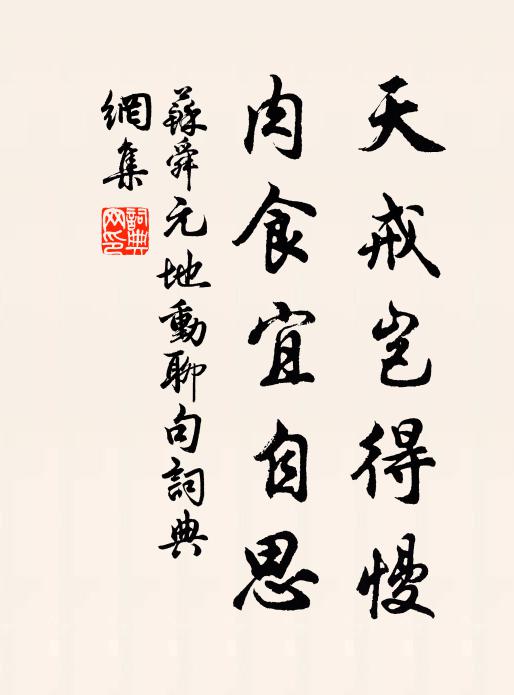 天戒岂得慢
肉食宜自思
蘇舜元地動聊句詞典
網集
詞典网印